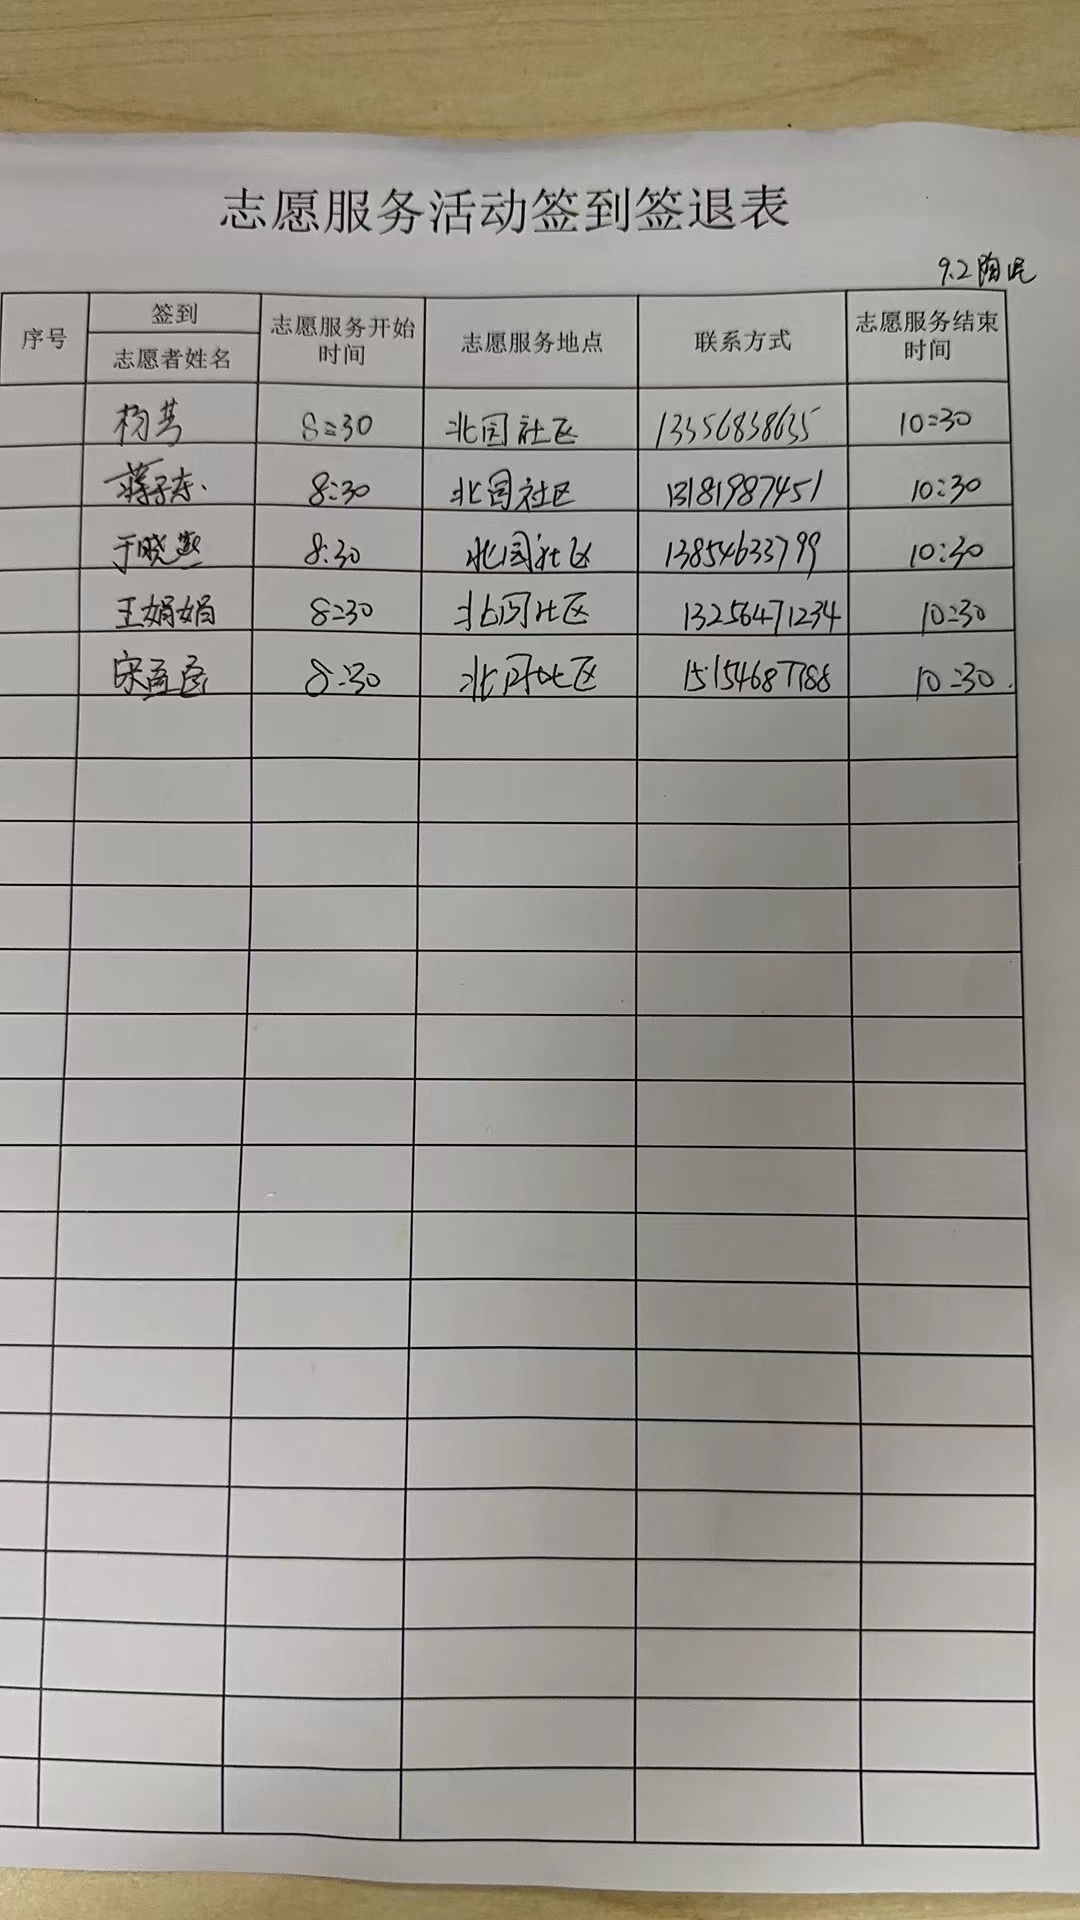 志愿服务活动签到签退表
9.2陶泥
序号 签到 志愿服务开始时间 志愿服务地点 联系方式 志愿服务结束时间
志愿者姓名
杨 8:30 北园社区 13356838635 10:30
蒋子东 8:30 北园社区 13181987451 10:30
于晓燕 8:30 北园社区 13854633799 10:30
王娟娟 8:30 北园社区 13256471234 10:30
宋 8:30 北园社区 15154687188 10:30